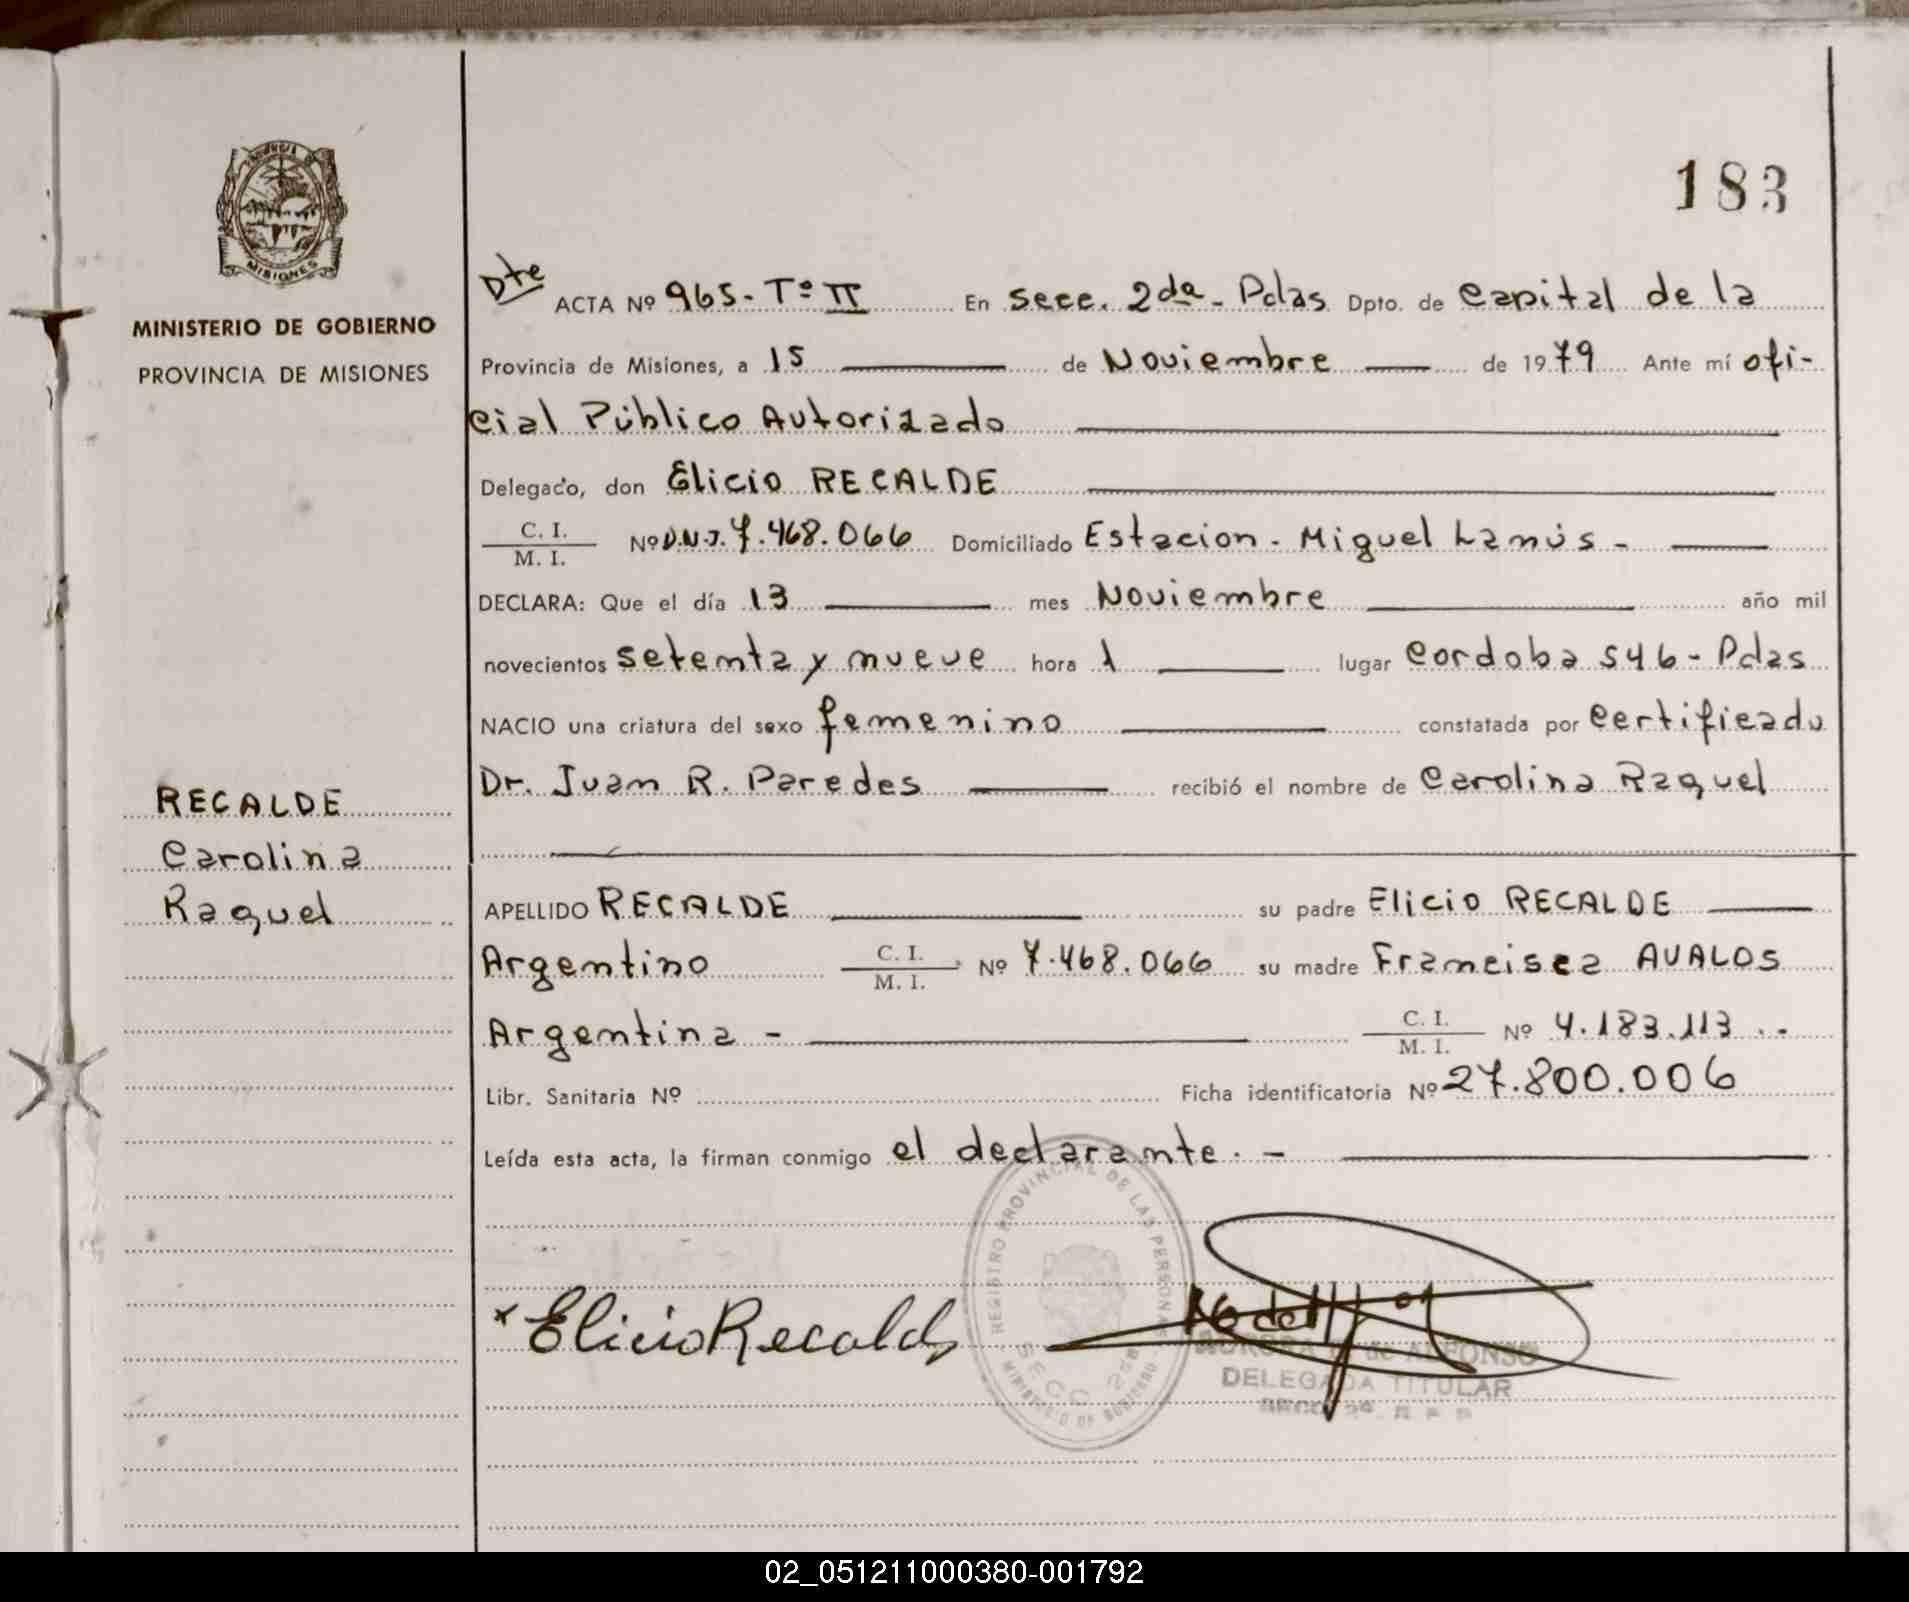 183
PROVINCIA DE
MISIONES
MINISTERIO DE GOBIERNO
PROVINCIA DE MISIONES
RECALDE
Carolina
Raquel
Dte
ACTA Nº 965-Tº II En secc. 2da - Pdas Dpto. de Capital de la
Provincia de Misiones, a 15 de Noviembre de 1979 Ante mí ofi-
cial Público Autorizado
Delegado, don Elicio RECALDE
C. I.
M. I. Nº D.N.I. 7.468.066 Domiciliado Estacion - Miguel Lanús -
DECLARA: Que el día 13 mes Noviembre año mil
novecientos setenta y nueve hora 1 lugar Cordoba 546 - Pdas
NACIO una criatura del sexo femenino constatada por certificado
Dr. Juan R. Paredes recibió el nombre de Carolina Raquel
APELLIDO RECALDE su padre Elicio RECALDE
Argentino C. I.
M. I. Nº 7.468.066 su madre Francisca AVALOS
Argentina - C. I.
M. I. Nº 4.183.113 . -
Libr. Sanitaria Nº Ficha identificatoria Nº 27.800.006
Leída esta acta, la firman conmigo el declarante. -
REGISTRO PROVINCIAL DE LAS PERSONAS
SECC. 2da
MINISTERIO DE GOBIERNO
x Elicio Recalde
AURORA de ALFONSO
DELEGADA TITULAR
02_051211000380-001792